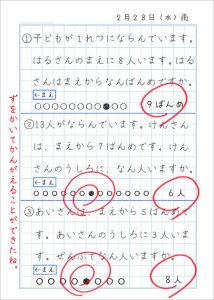 2月28日(水)雨
①子どもが1れつにならんでいます。
はるさんのまえに8人います。はる
さんはまえからなんばんめですか。
←まえ
9ばんめ
②13人がならんでいます。けんさん
は、まえから7ばんめです。けん
さんのうしろに、なん人いますか。
←まえ
6人
③あいさんは、まえから5ばんめで
す。あいさんのうしろに3人いま
す。ぜんぶでなん人いますか。
←まえ
8人
ずをかいてかんがえることができたね。